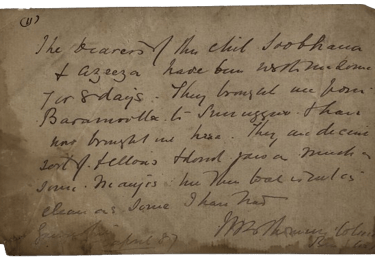 (11)
The bearers of this chit Soobhana
& Azeeza have been with me some
7 or 8 days. They brought me from
Baramoolla to Srinuggur & have
now brought me here. They are decent
sort of fellows & dont jaw as much as
some Manjis. me their boat is not as
clean as some I have had
April